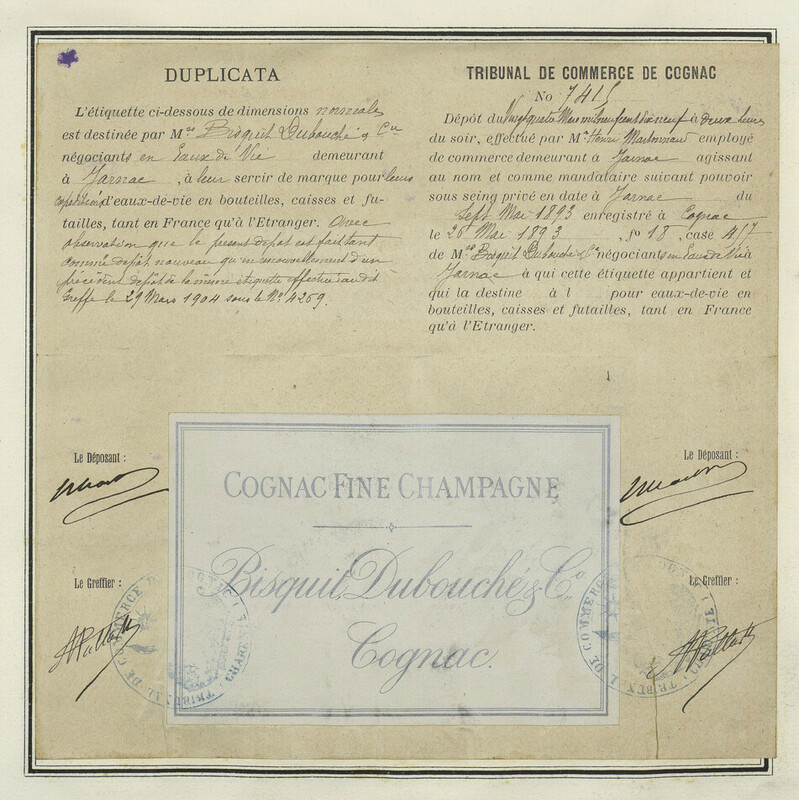 DUPLICATA
L'étiquette ci-dessous de dimensions normales
est destinée par Mrs Bisquit Dubouché & Cie
négociants en Eaux de Vie demeurant
à Jarnac, à leur servir de marque pour leurs
expéditions d'eaux-de-vie en bouteilles, caisses et fu-
tailles, tant en France qu'à l'Etranger. Avec
observation que le présent dépôt est fait tant
comme dépôt nouveau qu'en renouvellement d'un
précédent dépôt de la même étiquette effectué au dit
Greffe le 29 Mars 1904 sous le No 4269.
TRIBUNAL DE COMMERCE DE COGNAC
No 7415
Dépôt du Vingt quatre Mai mil neuf cent dix neuf à deux heures
du soir, effectué par Mr Henri employé
de commerce demeurant à Jarnac agissant
au nom et comme mandataire suivant pouvoir
sous seing privé en date à Jarnac du
Sept Mai 1893 enregistré à Cognac
le 26 Mai 1893, fo 18, case 4/7
de Mrs Bisquit Dubouché & Cie négociants en Eaux de Vie à
Jarnac à qui cette étiquette appartient et
qui la destine à l pour eaux-de-vie en
bouteilles, caisses et futailles, tant en France
qu'à l'Etranger.
Le Déposant :
Le Déposant :
COGNAC FINE CHAMPAGNE
Bisquit, Dubouché & Co.
Cognac.
Le Greffier :
Le Greffier :
TRIBUNAL DE COMMERCE DE COGNAC (CHARENTE)
TRIBUNAL DE COMMERCE DE COGNAC